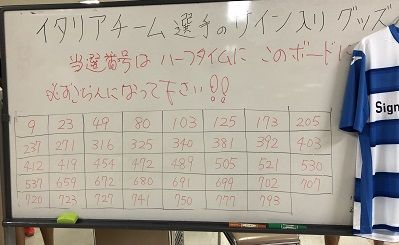 イタリアチーム選手のサイン入りグッズ
当選番号はハーフタイムにこのボードに
必ずごらんになって下さい!!
9 23 49 80 103 125 173 205
237 271 316 325 340 381 392 403
412 419 454 472 489 505 521 530
537 659 672 680 691 699 702 707
720 723 727 741 750 777 793
Sign